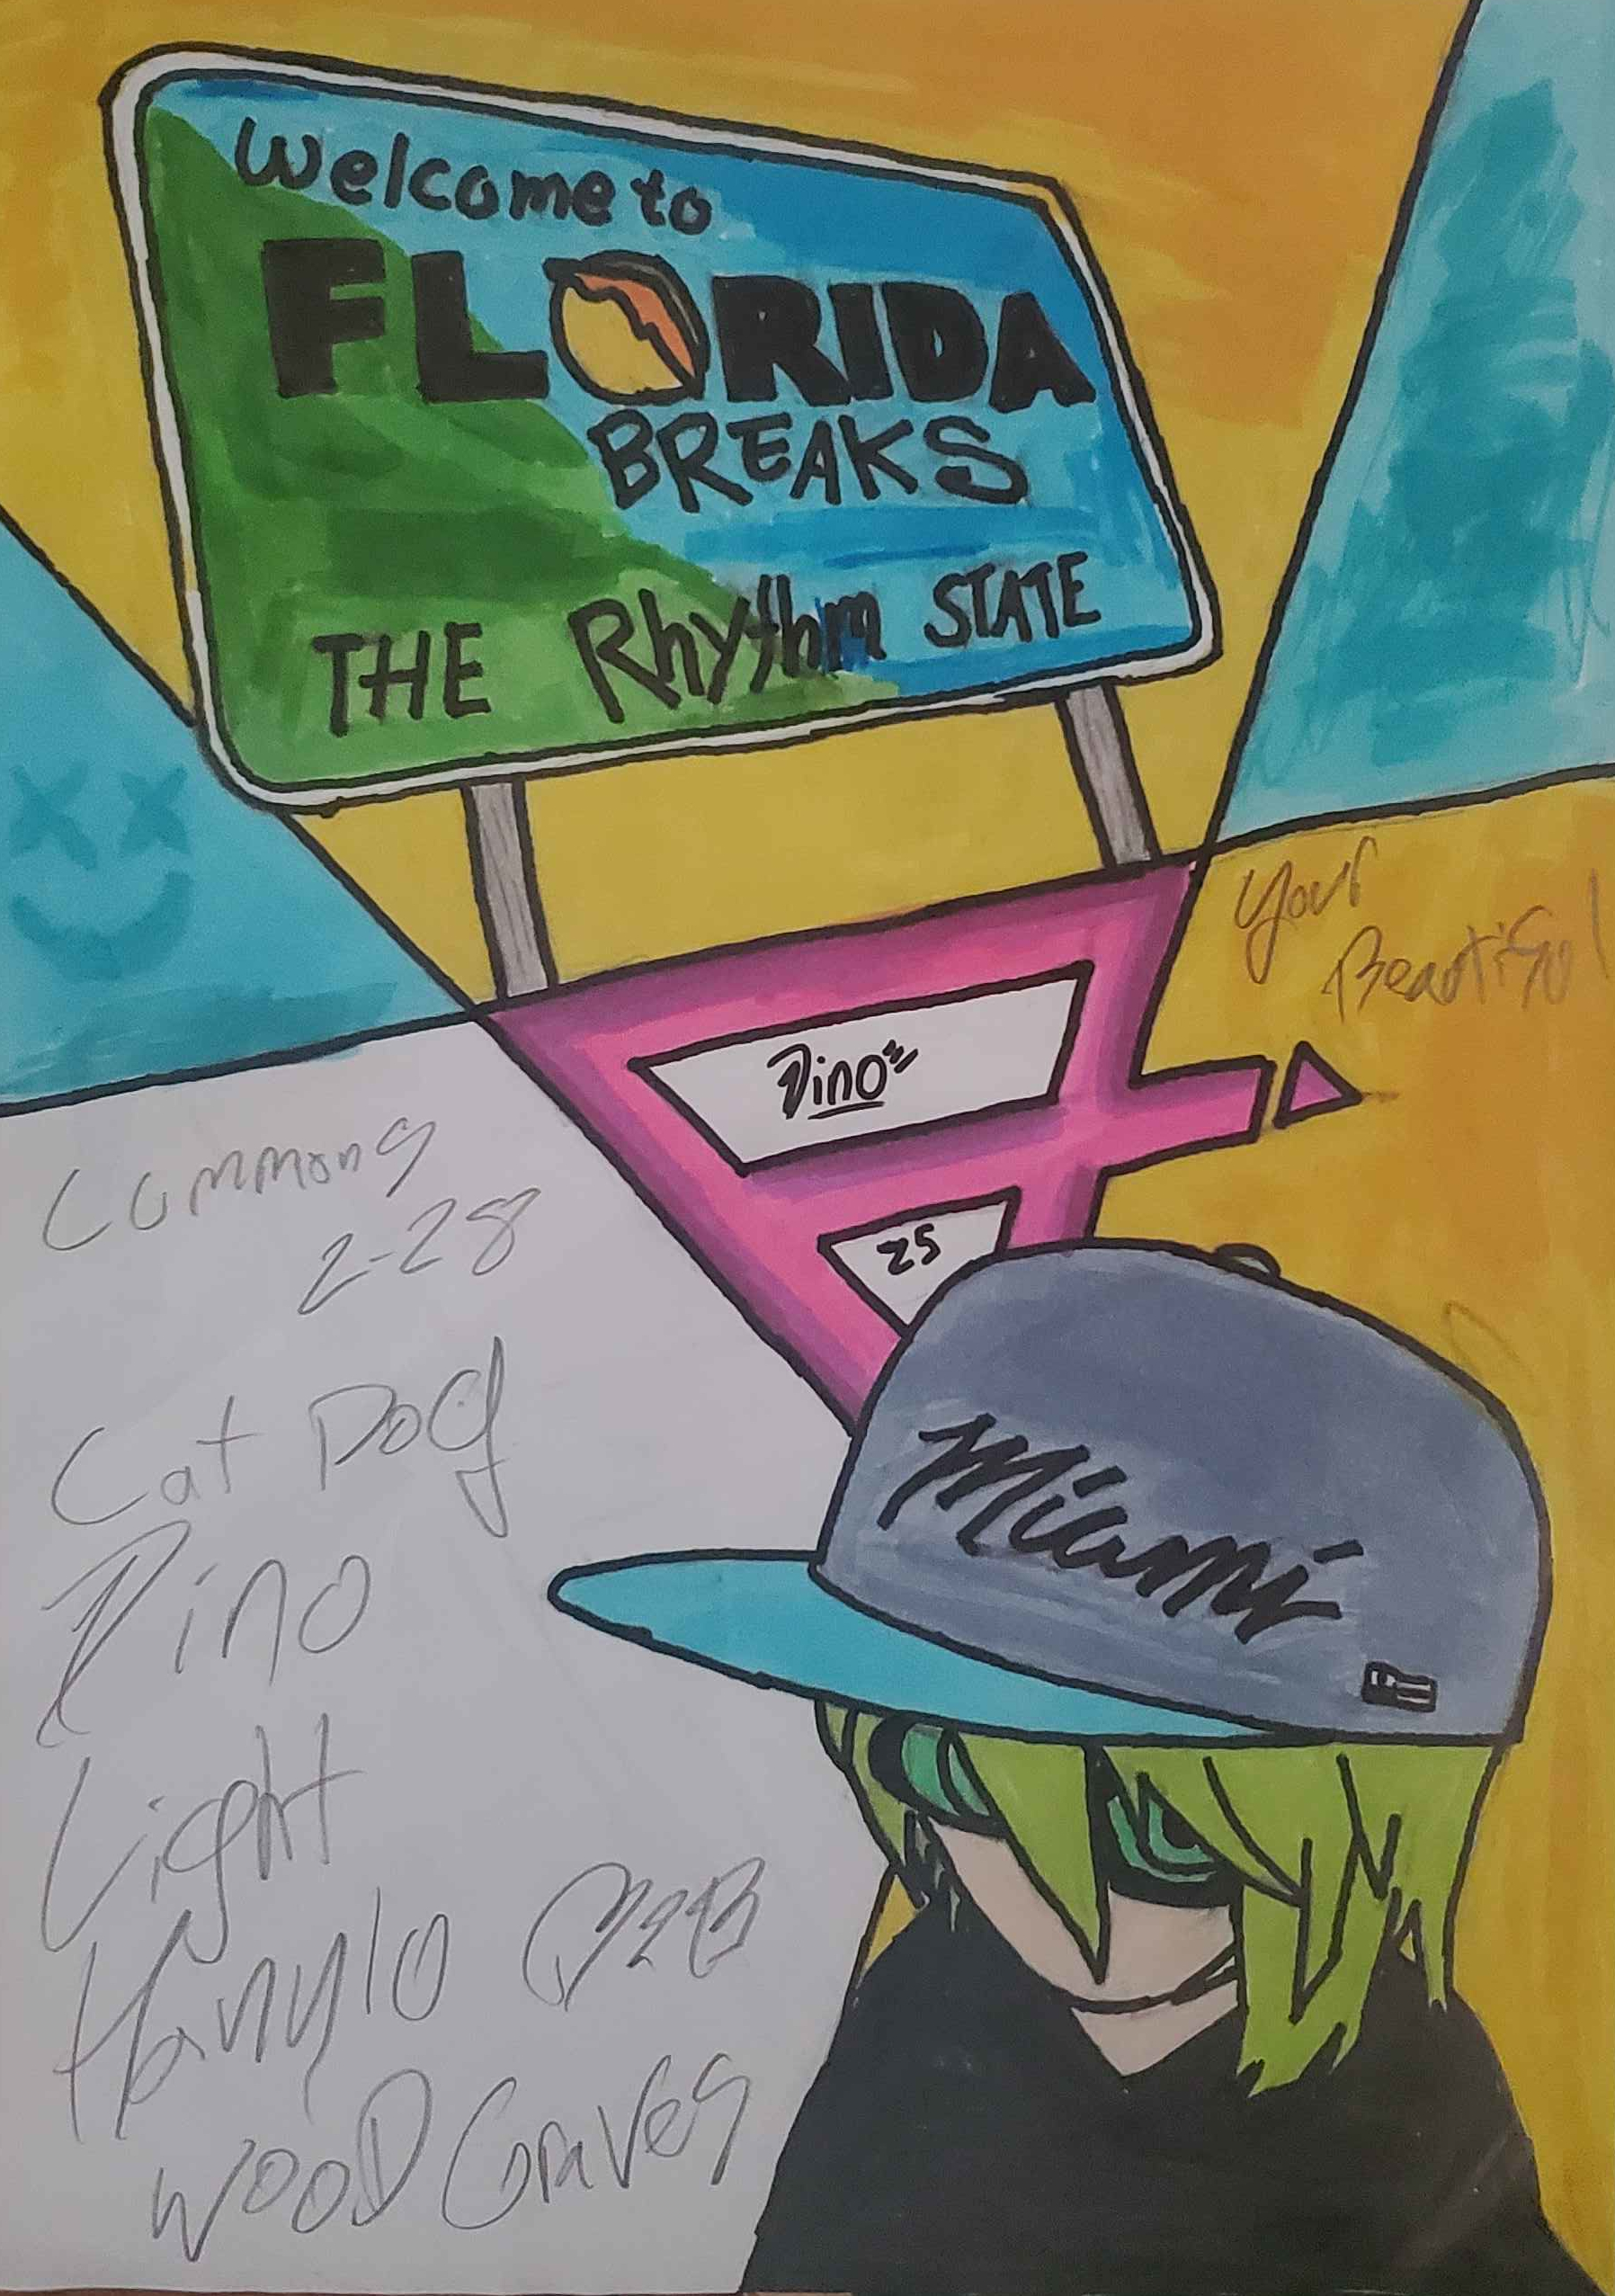 Welcome to
FLORIDA
BREAKS
THE Rhythm STATE
Your
Beautiful
Dino
25
Commons
2-28
Miami
Cat Dog
Dino
Light
Hanylo B2B
WOOD Graves